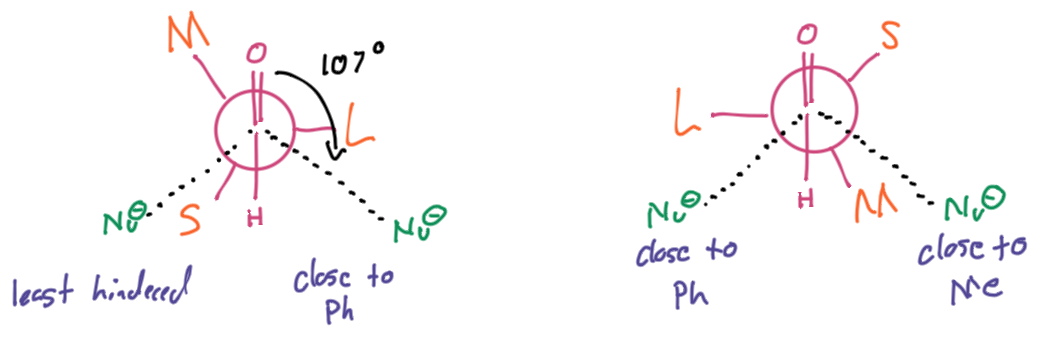 M
O
107°
L
Nu⊖
S
H
Nu⊖
least hindered
close to
Ph
O
S
L
Nu⊖
H
M
Nu⊖
close to
Ph
close to
Me